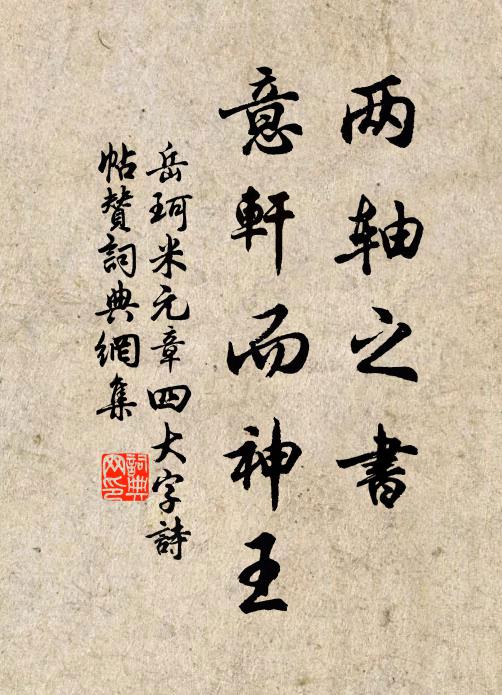 两轴之書
意軒而神王
岳珂米元章四大字詩
帖贊詞典網集
詞典
网印